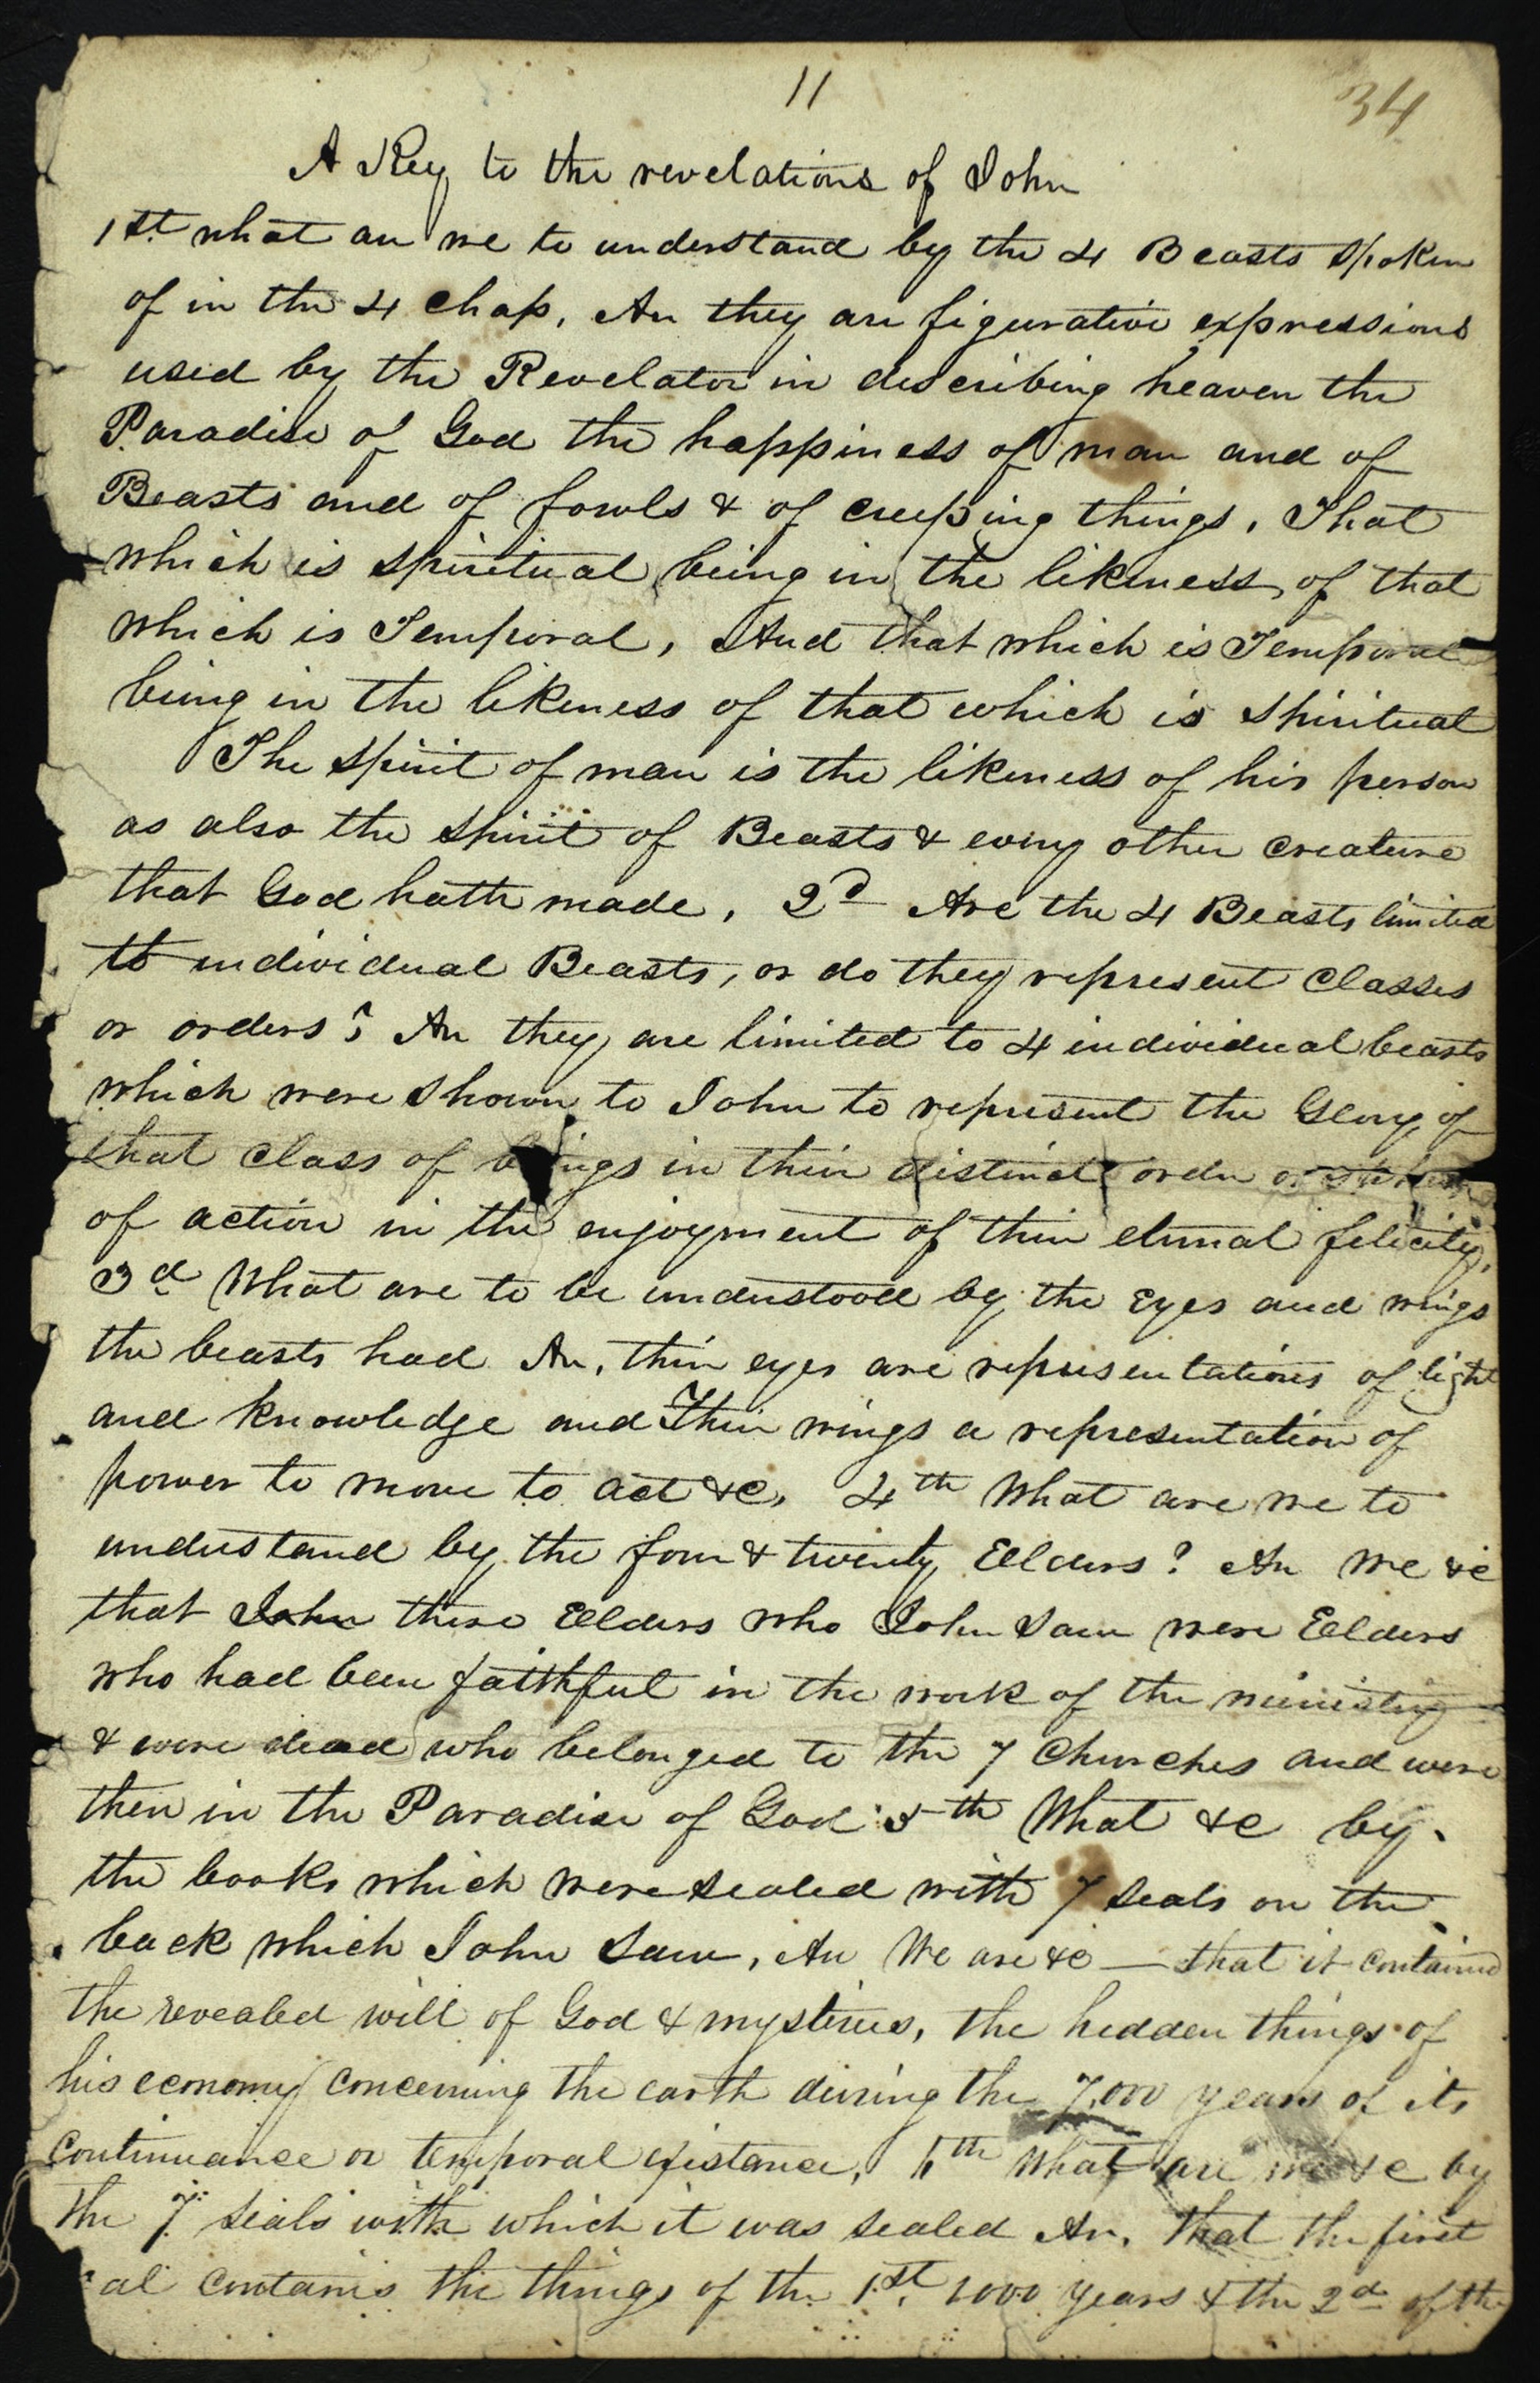 11
34
A Key to the revelations of John
1st what are we to understand by the 4 Beasts spoken
of in the 4 chap, An they are figurative expressions
used by the Revelator in describing heaven the
Paradise of God the happiness of man and of
Beasts and of fowls & of creeping things, That
which is spiritual being in the likeness of that
which is Temporal, And that which is Temporal
being in the likeness of that which is spiritual
The spirit of man is the likeness of his person
as also the spirit of Beasts & every other creature
that God hath made, 2d Are the 4 Beasts limited
to individual Beasts, or do they represent classes
or orders? An they are limited to 4 individual beasts
which were shown to John to represent the Glory of
that class of beings in their distinct order or
of action in the enjoyment of their eternal felicity,
3d What are to be understood by the Eyes and wings
the beasts had An, their eyes are representations of light
and knowledge and Their wings a representation of
power to move to act &c, 4th What are we to
understand by the four & twenty Elders? An We &c
that John these Elders who John saw were Elders
who had been faithful in the work of the ministry
& were dead who belonged to the 7 Churches and were
then in the Paradise of God 5th What &c by
the books which were sealed with 7 seals on the
back which John saw, An We are &c — that it contained
the revealed will of God & mysteries, the hidden things of
his economy concerning the earth during the 7,000 years of its
continuance or temporal existance, 6th What are we &c by
the 7 seals with which it was sealed An, that the first
eal contains the things of the 1st, 1000 years & the 2d of the